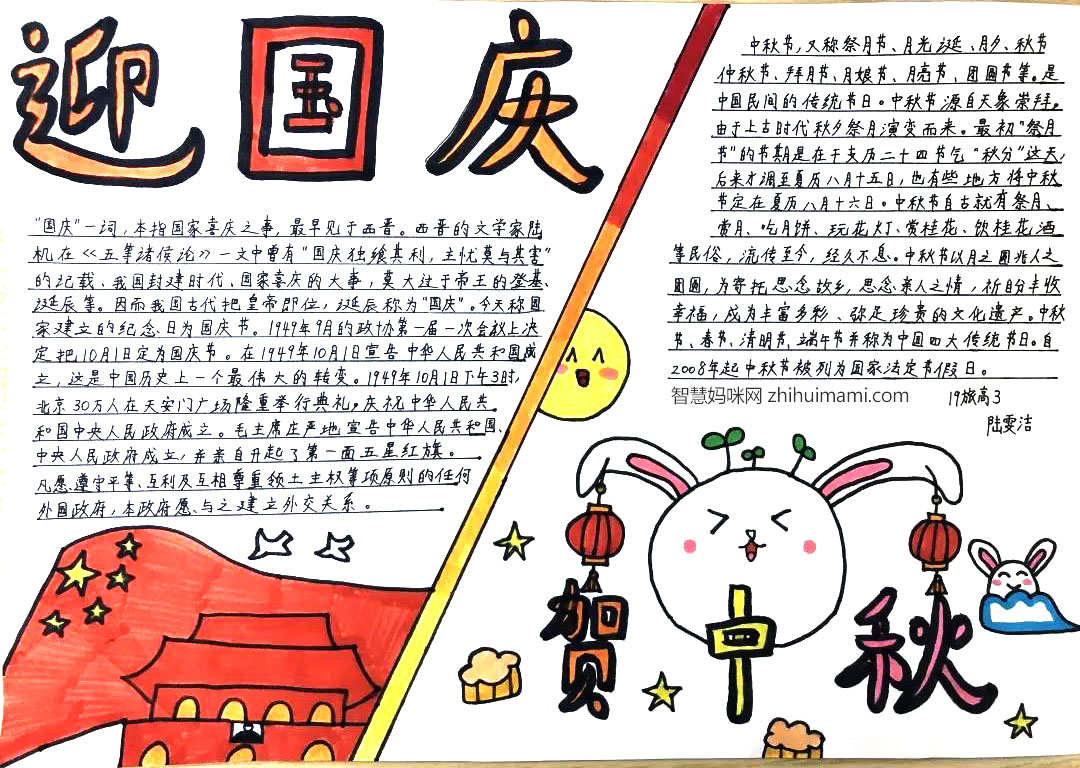 迎国庆
"国庆"一词，本指国家喜庆之事，最早见于西晋。西晋的文学家陆
机在《五等诸侯论》一文中曾有"国庆独飨其利，主忧莫与其害"
的记载、我国封建时代、国家喜庆的大事，莫大过于帝王的登基、
诞辰等。因而我国古代把皇帝即位，诞辰称为"国庆"。今天称国
家建立的纪念日为国庆节。1949年9月的政协第一届一次会议上决
定把10月1日定为国庆节。在1949年10月1日宣告中华人民共和国成
立，这是中国历史上一个最伟大的转变。1949年10月1日下午3时，
北京30万人在天安门广场隆重举行典礼，庆祝中华人民共
和国中央人民政府成立。毛主席庄严地宣告中华人民共和国、
中央人民政府成立，并亲自升起了第一面五星红旗。
凡愿遵守平等、互利及互相尊重领土主权等项原则的任何
外国政府，本政府愿与之建立外交关系。
中秋节，又称祭月节、月光诞、月夕、秋节
仲秋节、拜月节、月娘节、月亮节、团圆节等。是
中国民间的传统节日。中秋节源自天象崇拜。
由于上古时代秋夕祭月演变而来。最初"祭月
节"的节期是在干支历二十四节气"秋分"这天，
后来才调至夏历八月十五日，也有些地方将中秋
节定在夏历八月十六日。中秋节自古就有祭月、
赏月、吃月饼、玩花灯、赏桂花、饮桂花酒
等民俗，流传至今，经久不息。中秋节以月之圆兆人之
团圆，为寄托思念故乡，思念亲人之情，祈盼丰收
幸福，成为丰富多彩、弥足珍贵的文化遗产。中秋
节、春节、清明节、端午节并称为中国四大传统节日。自
2008年起中秋节被列为国家法定节假日。
智慧妈咪网 zhihuimami.com
19旅高3
陆雯洁
贺中秋